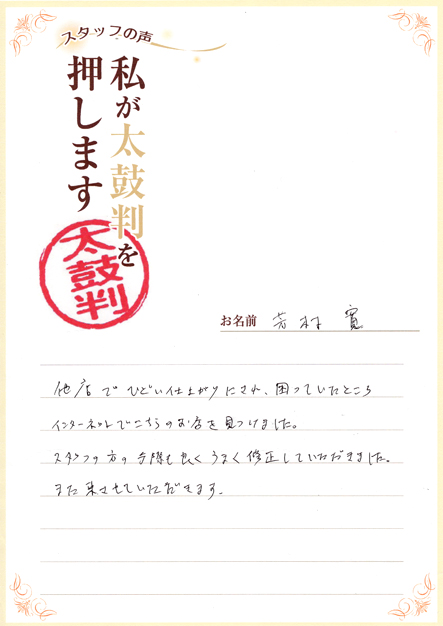 スタッフの声
私が太鼓判を
押します
太鼓判
お名前 吉村 寛
他店でひどい仕上がりにされ、困っていたところ
インターネットでこちらのお店を見つけました。
スタッフの方の手際も良くうまく修正していただきました。
また来させていただきます。